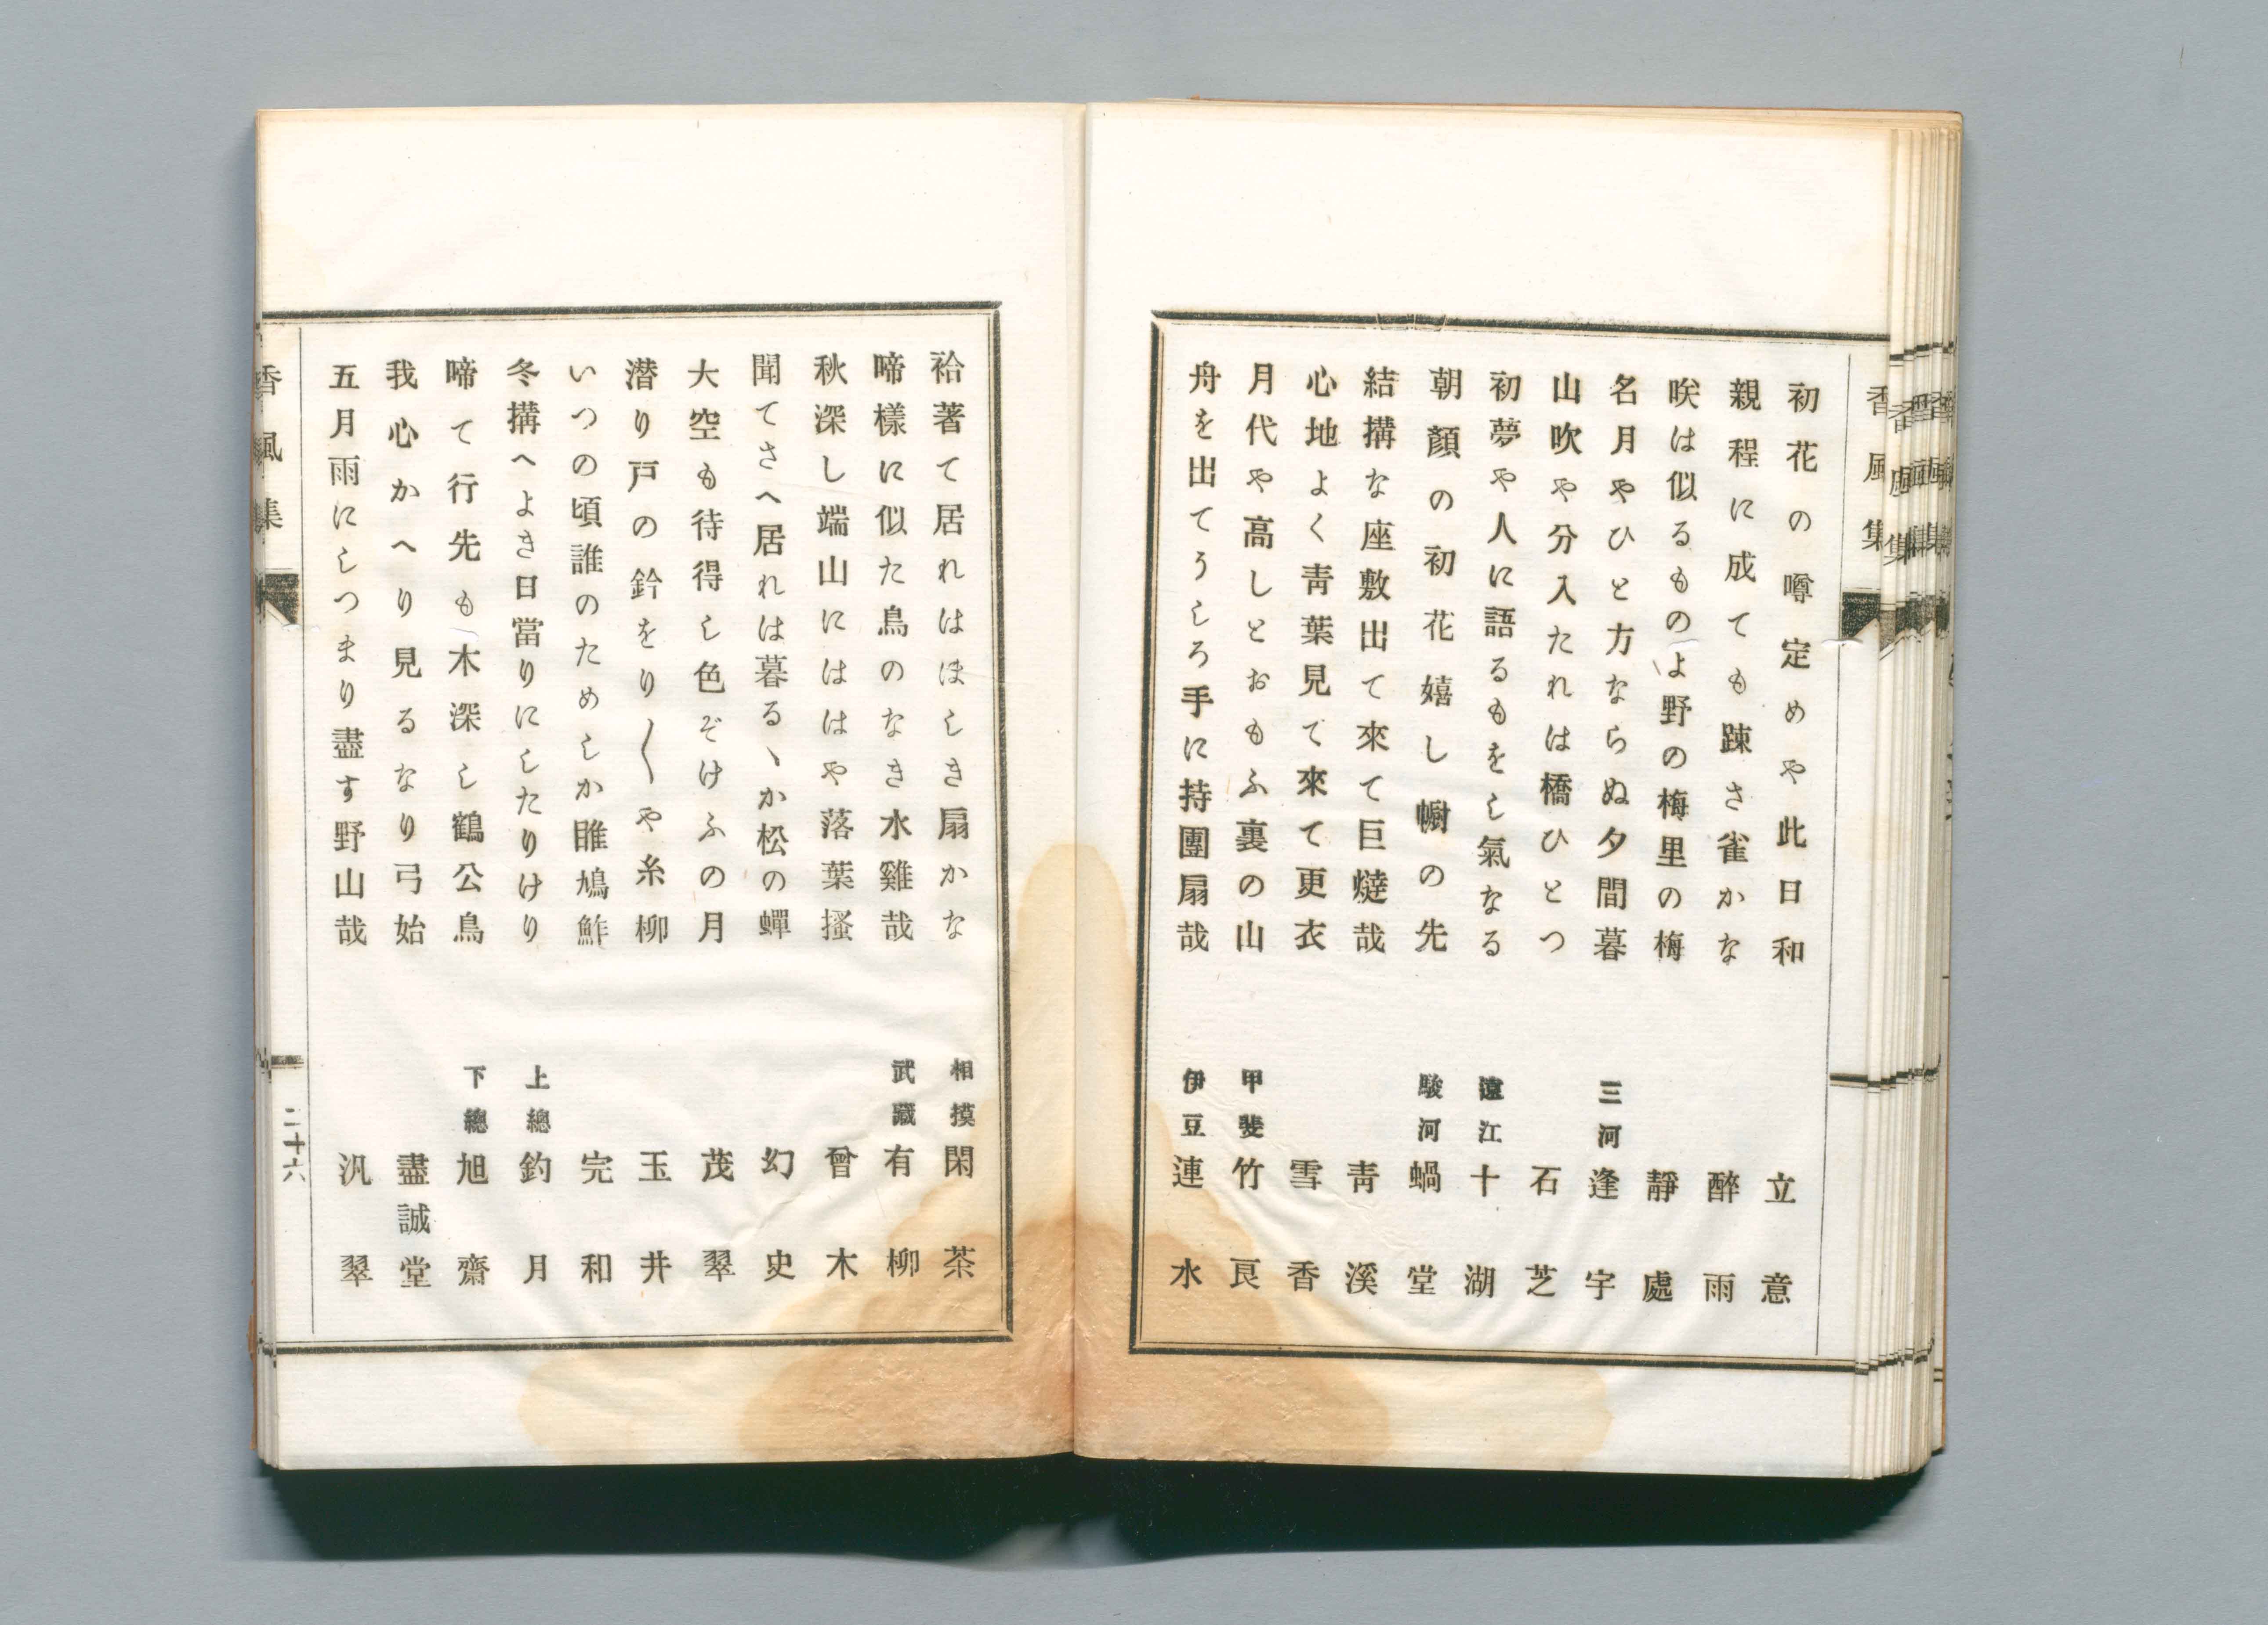 香風集
初花の噂定めや此日和　立意
親程に成ても踈さ雀かな　醉雨
咲は似るものよ野の梅里の梅　靜處
名月やひと方ならぬ夕間暮　三河　逢宇
山吹や分入たれは橋ひとつ　石芝
初夢や人に語るもをし氣なる　遠江　十湖
朝顏の初花嬉し幮の先　駿河　蝸堂
結搆な座敷出て來て巨燵哉　靑溪
心地よく靑葉見て來て更衣　雪香
月代や高しとおもふ裏の山　甲斐　竹良
舟を出てうしろ手に持團扇哉　伊豆　連水
袷著て居れはほしき扇かな　相摸　閑茶
啼樣に似た鳥のなき水雞哉　武藏　有柳
秋深し端山にははや落葉搔　曾木
聞てさへ居れは暮るゝか松の蟬　幻史
大空も待得し色ぞけふの月　茂翠
潜り戸の鈴をり〱や糸柳　玉井
いつの頃誰のためしか睢鳩鮓　完和
冬搆へよき日當りにしたりけり　上總　釣月
啼て行先も木深し鶴公鳥　下總　旭齋
我心かへり見るなり弓始　盡誠堂
五月雨にしつまり盡す野山哉　汎翠
香風集
二十六